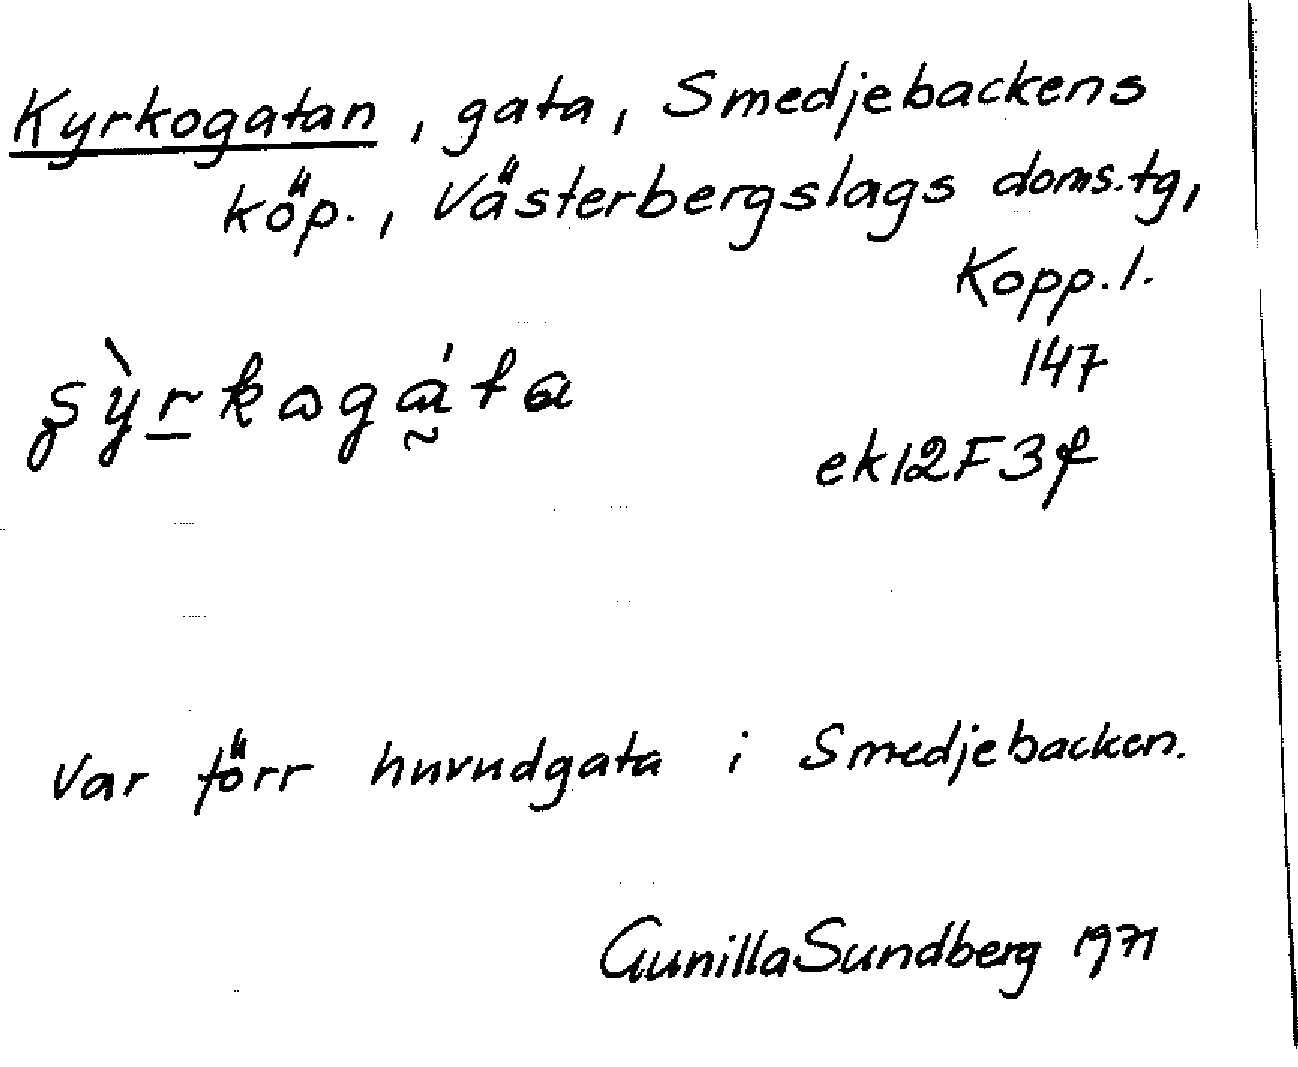 Kyrkogatan, gata, Smedjebackens
köp., Västerbergslags doms.tg,
Kopp. l.
147
ek12F3f
Var förr huvudgata i Smedjebacken.
Gunilla Sundberg 1971